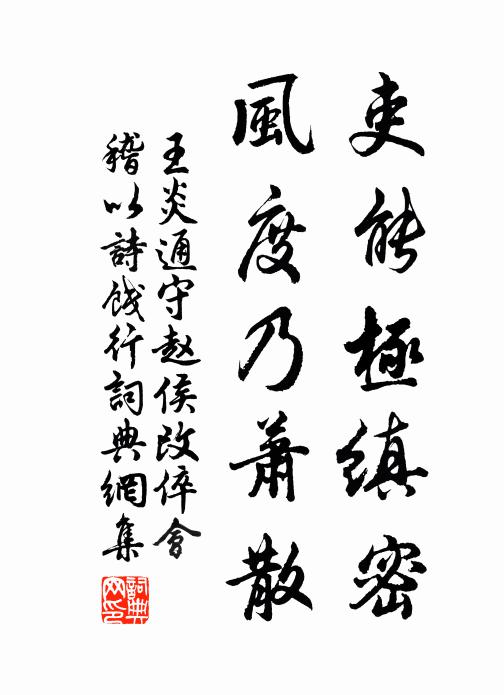 吏能極縝密
風度乃蕭散
王炎通守赵侯改倅會
稽以詩餞行詞典網集
詞典網印